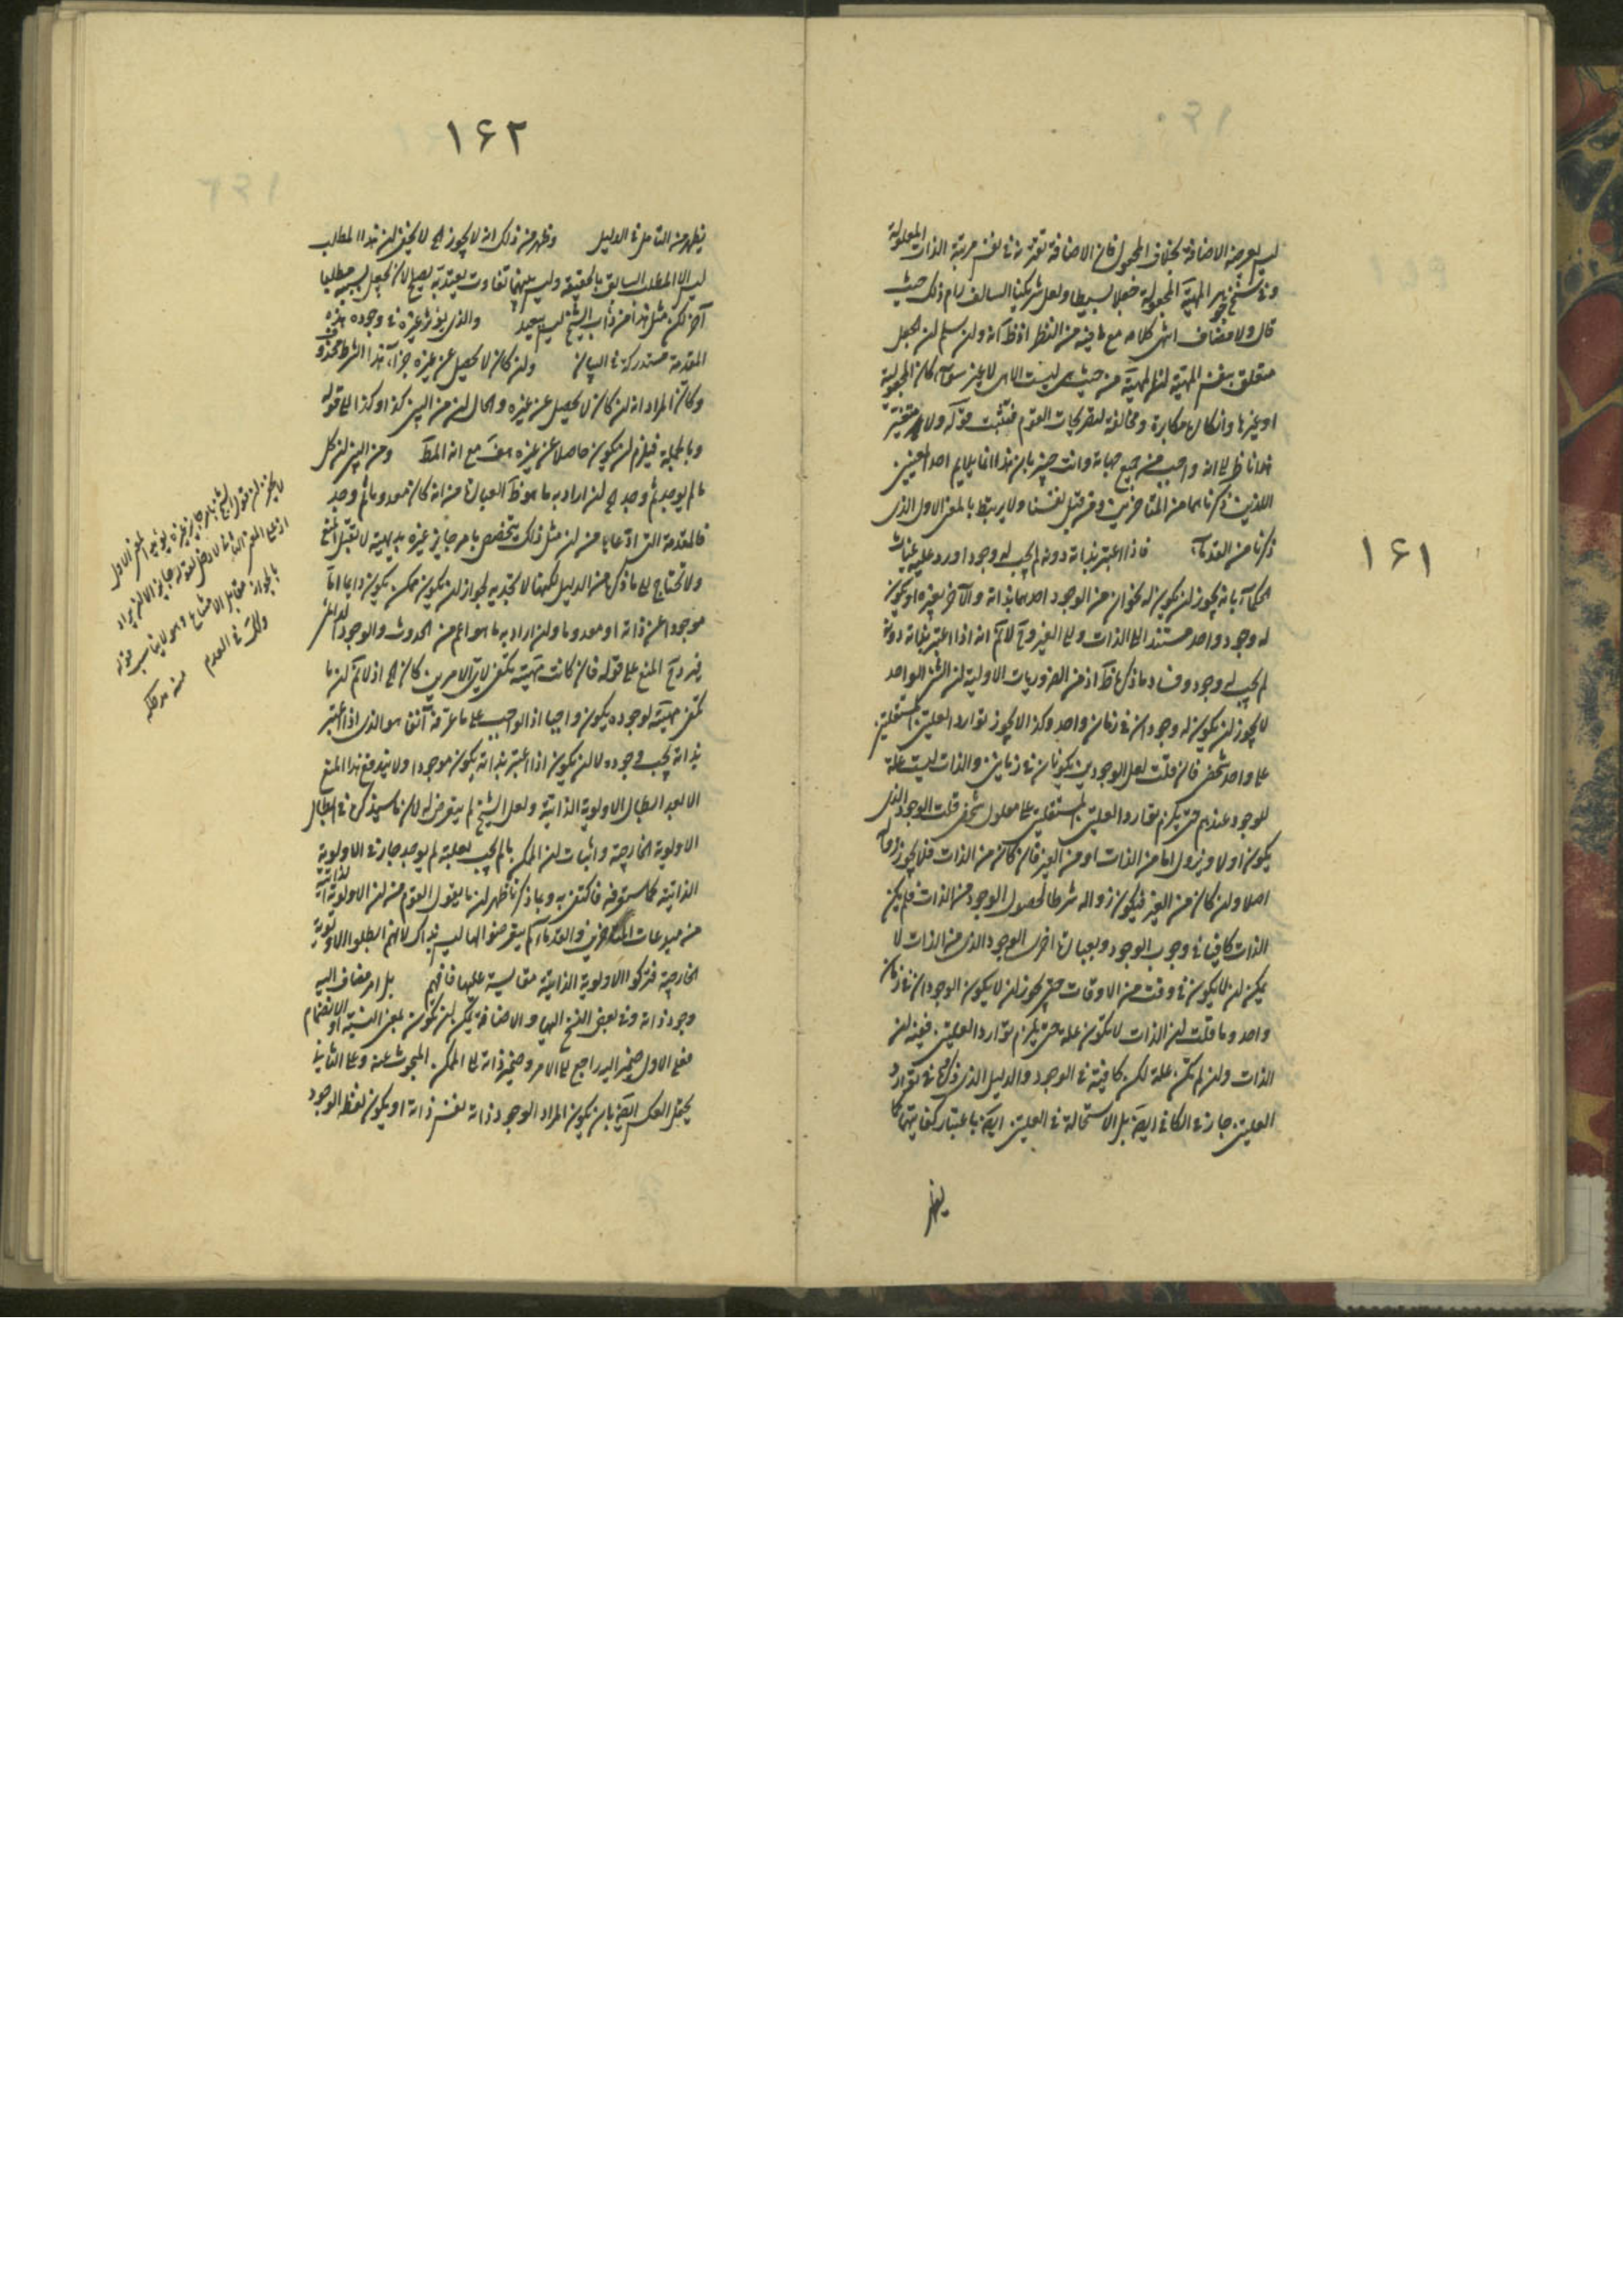 ١۶١
ليس يعرضه الاضافة بخلاف المجعول فان الاضافة تعتبر في نفس مرتبة الذات المعلولة
المهية المجعولة جعلا بسيطا ولعل شريكنا السالف رام ذلك حيث
قال ولا مضاف انتهى كلامه مع ما فيه من النظر اذ ظ انه ولن سلم لن الجعل
متعلق بنفس المهية لن المهية من حيث هى ليست الا هى لا غير سواء كان المجعولية
او غيرها وانكارها مكابرة ومخالفة لتصريحات القوم فتثبت قوله ولا متغير
ناظر الى انه واجب من جميع جهاته وانت خبير بان هذا انما يلايم احد المعنيين
اللذين ذكرناهما من المتاخرين ومن قبل نفسنا ولا يرتبط بالمعنى الاول الذى
ذكرنا من القدماء فاذا اعتبر بذاته دونه لم يجب له وجود اورد عليه غياث
الحكماء بانه يجوز لن يكون له نحوان من الوجود احدهما بذاته والآخر بغيره او يكون
له وجود واحد مستند الى الذات والى الغير وح لا نم انه اذا اعتبر بذاته دونه
لم يجب له وجود وفساد ما ذكره ظ اذ من الضروريات الاولية لن الشئ الواحد
لا يجوز لن يكون له وجودان في زمان واحد وكذا لا يجوز توارد العلتين المستقلتين
على واحد شخصى فان قلت لعل الوجودين يكونان في زمانين والذات ليست علة
للوجود عندهم حتى يلزم توارد العلتين المستقلتين على معلول شخصى قلت الوجود الذى
يكون اولا ويزول اما من الذات او من الغير فان كان من الذات فلا يجوز زواله
اصلا ولن كان من الغير فيكون زواله شرطا لحصول الوجود من الذات فلم يكن
الذات كافيا في وجوب الوجود وبعبارة اخرى الوجود الذى من الذات لا
يمكن لن لا يكون في وقت من الاوقات حتى يجوز لن لا يكون الوجودان في زمان
واحد وما قلت لن الذات لا يكون علة حتى يلزم توارد العلتين ففيه لن
الذات ولن لم يكن علة لكن كافية في الوجود والدليل الذى ذكروه في توارد
العلتين جار في الكافى ايضا بل الاستحالة في العلتين ايضا باعتبار كفايتهما كما
يظهر
١۶٢
يظهر من التامل في الدليل وظهر من ذلك انه لا يجوز الخ لا يخفى لن هذا المطلب
ليس الا المطلب السابق بالحقيقة وليس بينهما تفاوت يعتد به يصلح لان يجعل بسببه مطلبا
آخر لكن مثل هذا من داب الشيخ ليس ببعيد والذى يؤثر غيره في وجوده هذه
المقدمة مستدركة في البيان ولن كان لا يحصل عن غيره جزاء هذا الشرط محذوف
وكان المراد انه لن كان لا يحصل عن غيره والحال لن من البين كذا وكذا الى قوله
وبالجملة فيلزم لن يكون حاصلا عن غيره هف مع انه المط ومن البين لن كل
ما لم يوجد ثم وجد الخ لن اراد به ما هو ظ العبارة من انه كان معدوما ثم وجد
فالمقدمة التى ادعاها من لن مثل ذلك يتخصص بامر جايز غيره بديهية لا يقبل المنع
ولا تحتاج الى ما ذكره من الدليل لكنها لا تجديه لجواز لن يكون ممكن يكون دايما اما
موجودا عن ذاته او معدوما ولن اراد به ما هو اعم من الحدوث والوجود الدايمى
فيرد ح المنع على قوله فان كانت مهيته تكفى لاى الامرين كان الخ اذ لا نم لن ما
تكفى مهيته لوجوده يكون واجبا اذ الواجب على ما عرفه آنفا هو الذى اذا اعتبر
بذاته يجب وجوده لا لن يكون اذا اعتبر بذاته يكون موجودا ولا يندفع هذا المنع
الا بعد ابطال الاولوية الذاتية ولعل الشيخ لم يتعرض له لان ما سيذكره في ابطال
الاولوية الخارجية واثبات لن الممكن ما لم يجب بعلته لم يوجد جار في الاولوية
الذاتية كما ستعرفه فاكتفى به وبما ذكرنا ظهر لن ما يقول القوم من لن الاولوية الذاتية
من مبدعات المتاخرين والقدماء لم يتعرضوا لها ليس بذاك لانهم ابطلوا الاولوية
الخارجية فتركوا الاولوية الذاتية مقايسة عليها فافهم بل امر مضاف اليه
وجود ذاته وفي بعض النسخ اليها والاضافة يمكن لن تكون بمعنى النسبة او الانضمام
فعلى الاول ضمير اليه راجع الى الامر وضمير ذاته الى الممكن المبحوث عنه وعلى الثانى
يحتمل العكس ايضا بان يكون المراد الوجود ذاته نفس ذاته او يكون لفظ الوجود
لا يخفى لن قول الشيخ بامر جايز غيره يؤيد المعنى الاول
اذ على المعنى الثانى لا دخل لقوله جايز الا لن يراد
بالجواز مقابل الامتناع وهو لا يناسب قوله
وكك في العدم منه مد ظله